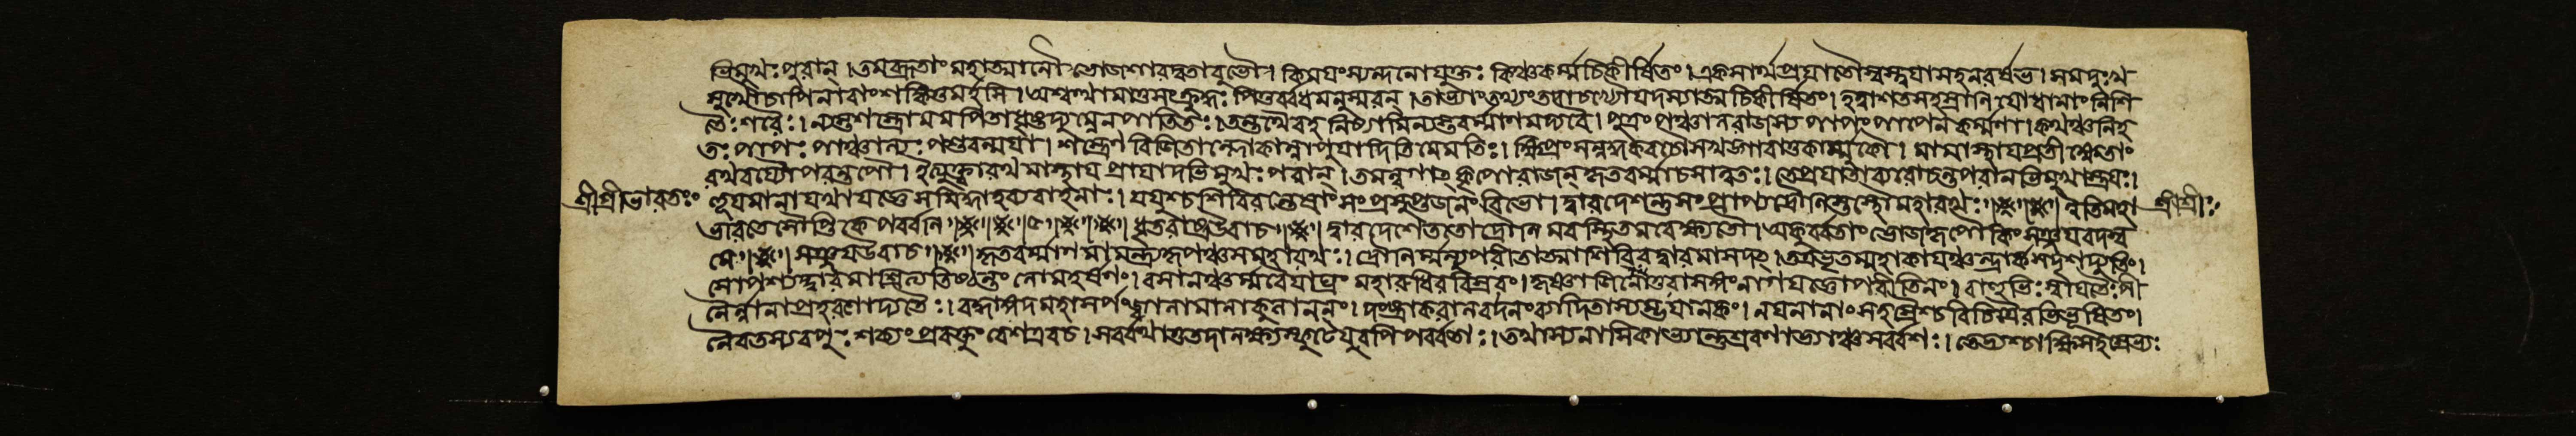 ভিমুখঃ পুরান্ । তমব্রূতাং মহাত্মানৌ ভোজশারদ্বতাবুভৌ । কিময়ং স্যন্দনো যুক্তঃ কিঞ্চ কর্ম্ম চিকীর্ষিতং । একসার্থপ্রযাতৌ স্বস্ত্বয়া সহ নরর্ষভ । সমদুঃখ
সুখৌ চাপি নাবাং শঙ্কিতুমর্হসি । অশ্বত্থামা তু সংক্রুদ্ধঃ পিতুর্ব্বধমনুস্মরন্ । তাভ্যাং তথ্যং তদাচখ্যৌ যদস্যাত্ম চিকীর্ষিতং । হত্বা শতসহস্রানি যোধানাং নিশি
তৈঃ শরৈঃ । ন্যস্তশস্ত্রো মম পিতা ধৃষ্টদ্যুম্নেন পাতিতঃ । তন্তথৈব হনিষ্যামি ন্যস্তবর্ম্মাণমদ্য বৈ । পুত্রং পাঞ্চালরাজস্য পাপং পাপেন কর্ম্মণা । কথঞ্চ নিহ
তঃ পাপঃ পাঞ্চাল্যঃ পশুবন্ময়া । শস্ত্রেণ বিজিতাল্লোকান্নাপুয়াদিতি মে মতিঃ । ক্ষিপ্রং সন্নদ্ধকবচৌ সখড্গাবাত্তকার্ম্মুকৌ । মামাস্থায় প্রতীক্ষেতাং
রথবর্য্যৌ পরন্তপৌ । ইত্যুক্ত্বা রথমাস্থায় প্রায়াদভিমুখঃ পরান্ । তমন্বগাৎ কৃপো রাজন্ কৃতবর্ম্মা চ সাত্বতঃ । তে প্রযাতা ব্যরোচন্ত পরানভিমুখাস্ত্রয়ঃ ।
শ্রীশ্রীভারতঃ হূয়মানা যথা যজ্ঞে সমিদ্ধা হব্যবাহনাঃ । যযুশ্চ শিবিরন্তেষাং সংপ্রসুপ্তজনং বিভো । দ্বারদেশন্তু সংপ্রাপ্য দ্রৌনিস্তস্থৌ মহারথঃ ॥ ॥ ইতি মহা শ্রীশ্রীঃ
ভারতে সৌপ্তিকে পর্ব্বনি ॥ ॥ ৫ ॥ ॥ ধৃতরাষ্ট্র উবাচ ॥ ॥ দ্বারদেশে ততো দ্রৌনিমবস্থিতমবেক্ষ্য তৌ । অকুর্ব্বতাং ভোজকৃপৌ কিং সঞ্জয় বদস্ব
মে ॥ ॥ সঞ্জয় উবাচ ॥ ॥ কৃতবর্ম্মাণমামন্ত্র্য কৃপঞ্চ স মহারথঃ । দ্রৌনির্ম্মন্যুপরীতাত্মা শিবিরদ্বারমাসদৎ । তত্র ভূতম্মহাকায়ঞ্চন্দ্রার্কসদৃশদ্যুতিং ।
সোপশ্যদ্দ্বারমাশ্রিত্য তিষ্ঠন্তং লোমহর্ষণং । বসানঞ্চর্ম্ম বৈয়াঘ্রং মহারুধিরবিস্রবং । কৃষ্ণাজিনোত্তরাসঙ্গং নাগযজ্ঞোপবীতিনং । বাহুভিঃ স্বায়তৈঃ পী
নৈর্ন্নানাপ্রহরণোদ্যতৈঃ । বদ্ধাঙ্গদমহাসর্পং জ্বালামালাকুলাননং । দংষ্ট্রাকরালবদনং ব্যাদিতাস্যম্ভয়ানকং । নয়নানাং সহস্রৈশ্চ বিচিত্রৈরভিভূষিতং ।
নৈব তস্য বপুঃ শক্যং প্রবক্তুং বেশ এব চ । সর্ব্বথা তু তদালক্ষ্য স্ফুটেয়ুরপি পর্ব্বতাঃ । তথাস্য নাসিকাভ্যান্তু শ্রবণাভ্যাঞ্চ সর্ব্বশঃ । তেভ্যশ্চাক্ষিসহস্রেভ্যঃ